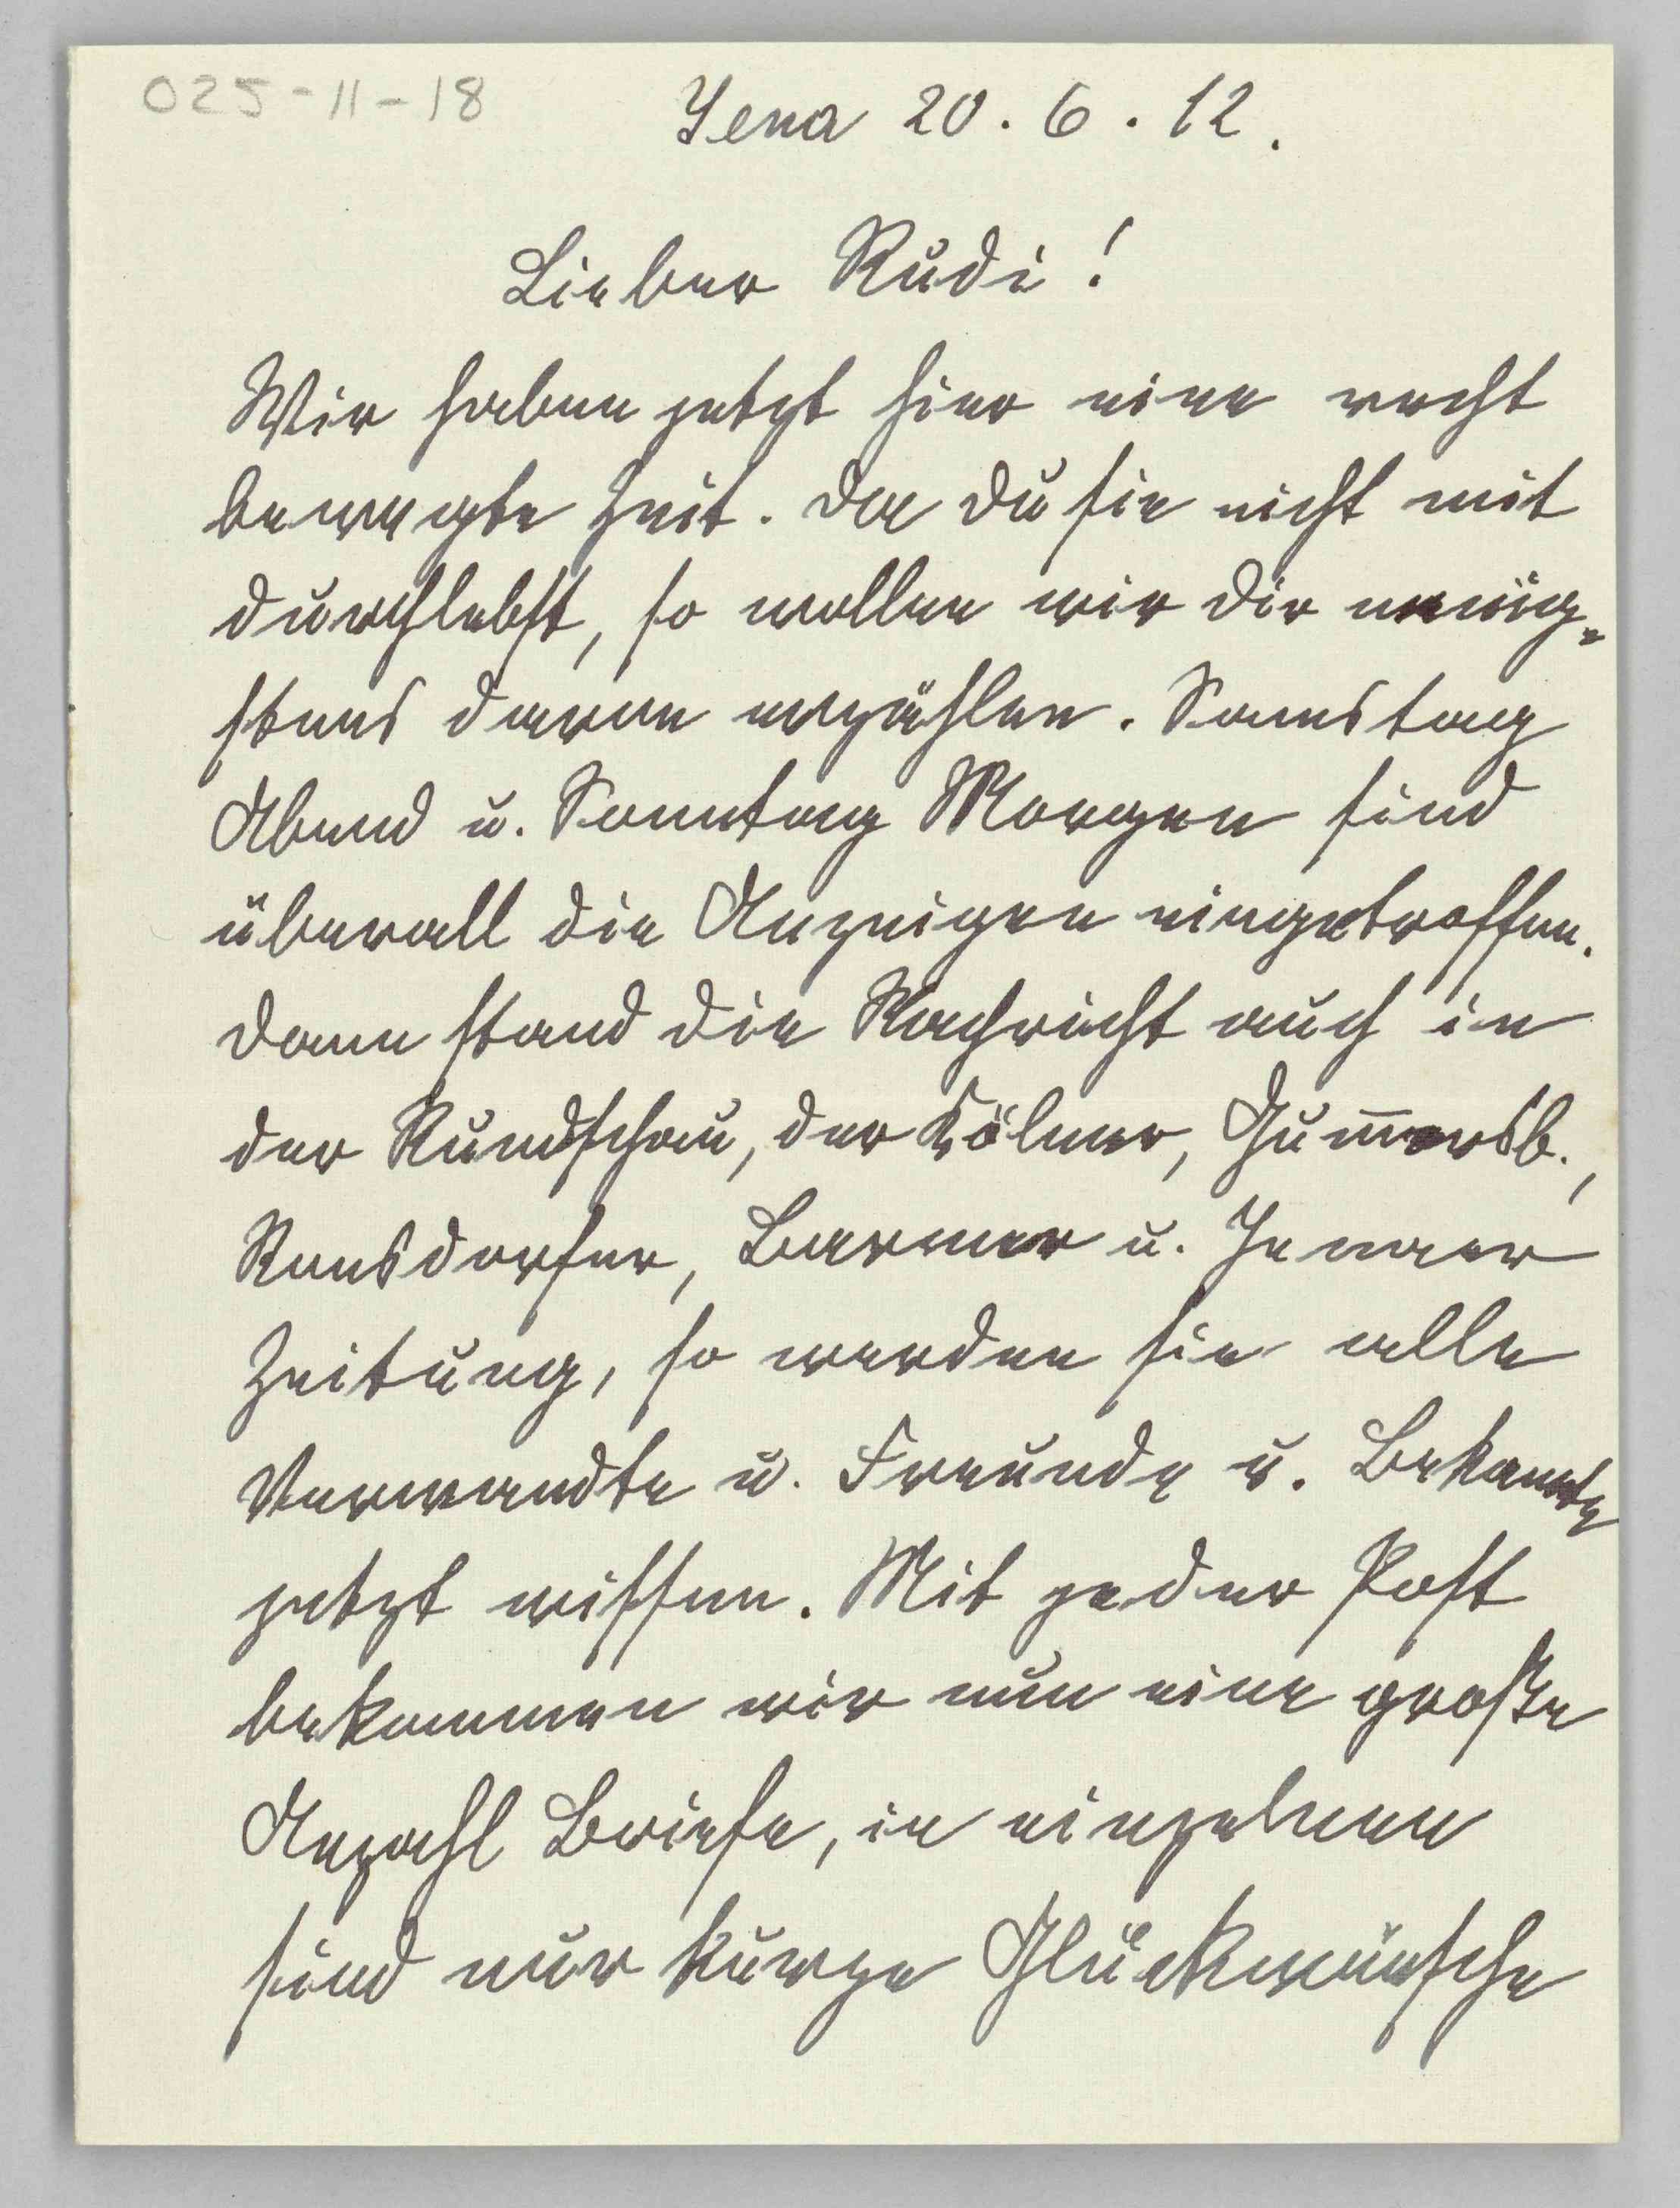 025-11-18
Jena 20. 6. 12.
Lieber Rudi!
Wir haben jetzt hier eine recht
bewegte Zeit. Da du sie nicht mit
durchlebst, so wollen wir dir wenig-
stens davon erzählen. Samstag
Abend u. Sonntag Morgen sind
überall die Anzeigen eingetroffen.
Dann stand die Nachricht auch in
der Rundschau, der Kölner, Gum̅ersb.,
Ronsdorfer, Barmer u. Jenaer
Zeitung, so werden sie alle
Verwandte u. Freunde u. Bekannte
jetzt wissen. Mit jeder Post
bekommen wir nun eine große
Anzahl Briefe, in einzelnen
sind nur kurze Glückwünsche